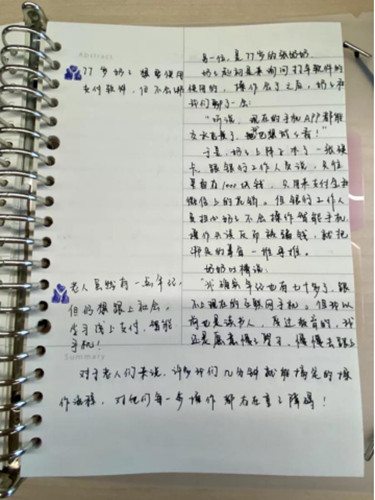 Abstract
77岁奶奶想要使用
支付软件,但不会
老人虽然有一点年纪,
但仍想跟上社会,
学习线上支付、智能
手机!
另一位是77岁的奶奶。
奶奶起初是来询问打车软件的
使用的,操作完了之后,奶奶和
我们聊了一会:
“听说,现在的手机APP都能
交水电煤了,我也想试一试!”
于是,奶奶上阵子办了一张银
卡,跟银行工作人员说,只
是留存1000块钱,只用来支付宝和
微信上的花销。但银行工作人
员担心奶奶不会操作智能手机,
操作失误反而被骗钱,就把
奶奶的
奶奶对我说:
“我确实年纪也有七十多了,跟
不上现在的互联网手机。但我以
前也是读书人,受过教育的,我
还是愿意慢慢学习,慢慢去跟上
Summary
对于老人们来说,许多我们几分钟就能搞定的操
作流程,对他们每一步操作都存在着障碍!